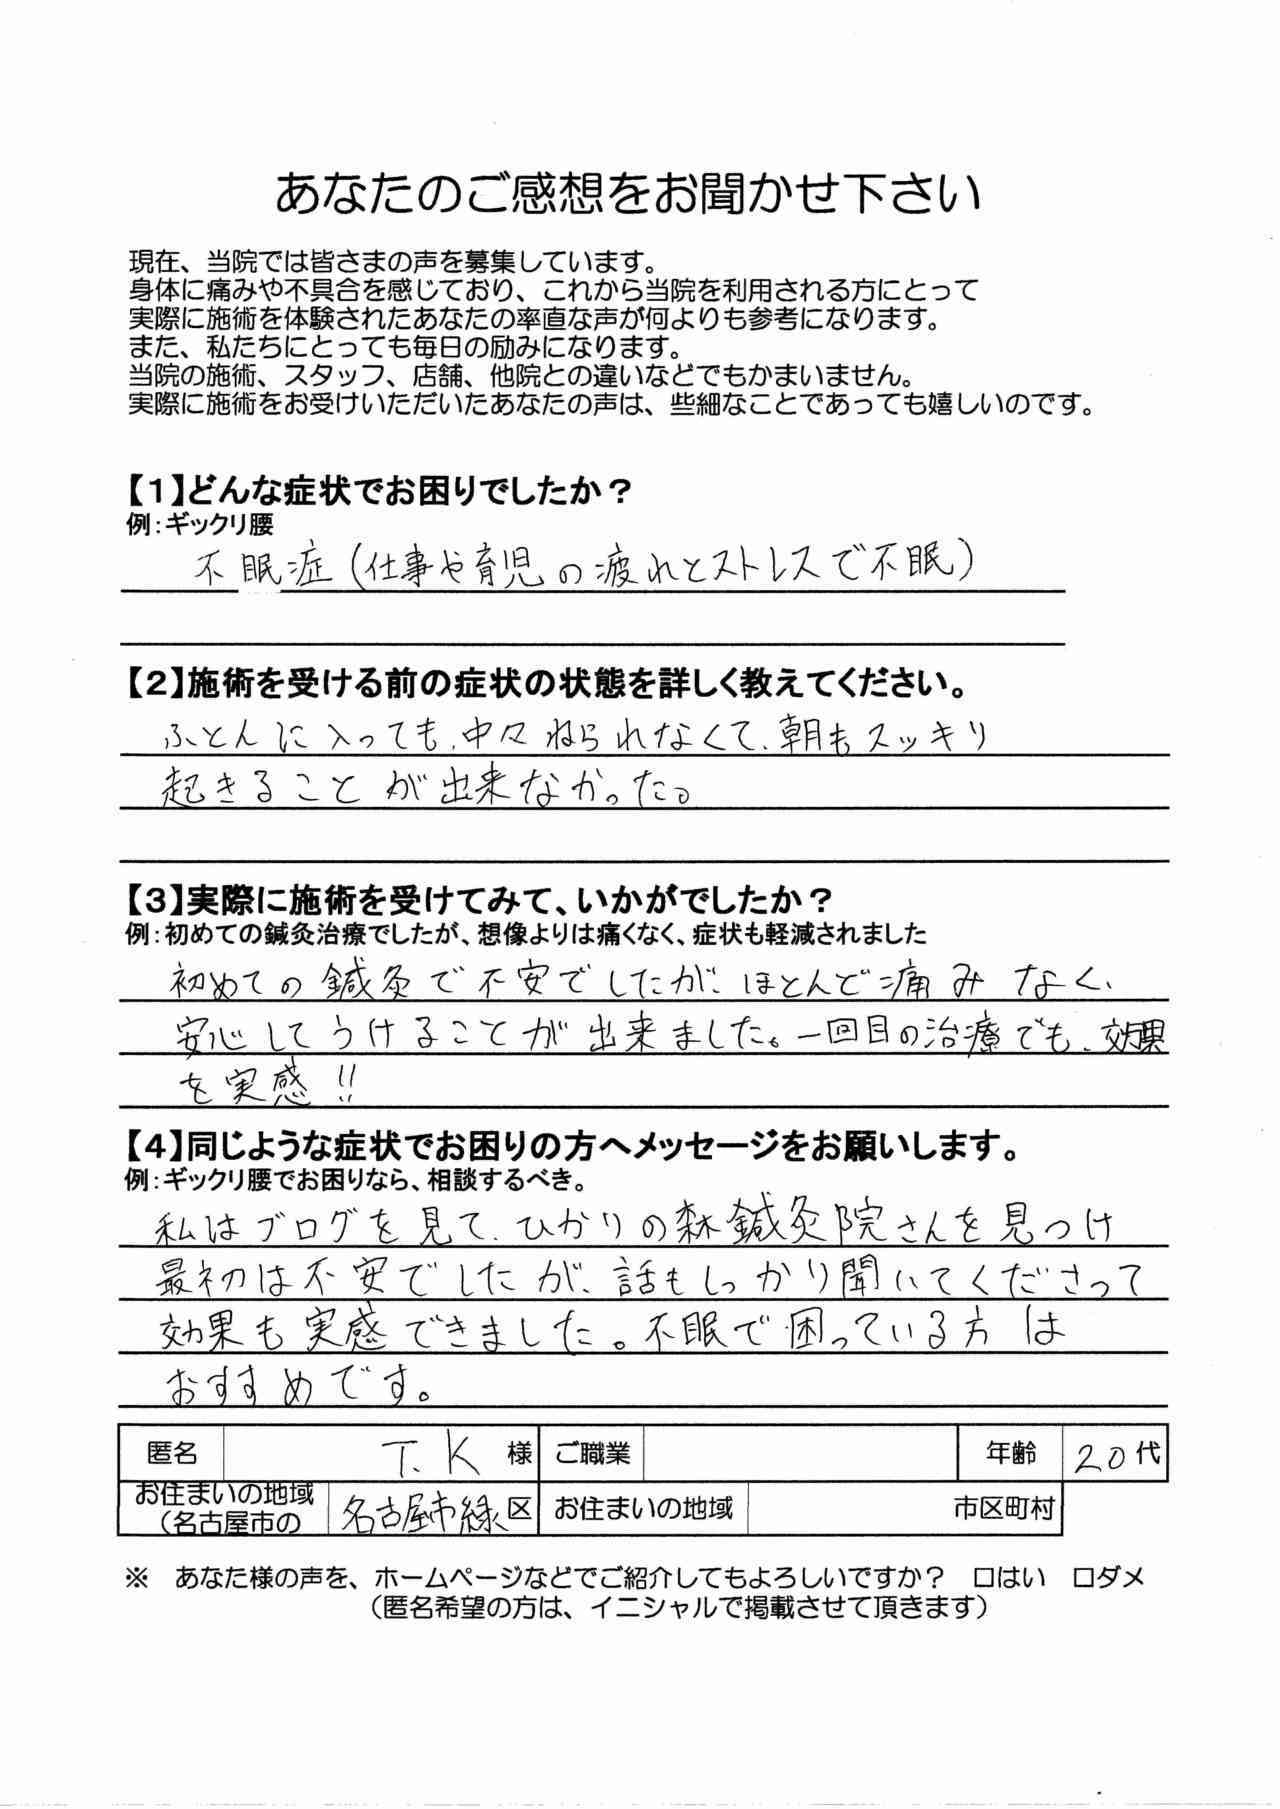 あなたのご感想をお聞かせ下さい
現在、当院では皆さまの声を募集しています。
身体に痛みや不具合を感じており、これから当院を利用される方にとって
実際に施術を体験されたあなたの率直な声が何よりも参考になります。
また、私たちにとっても毎日の励みになります。
当院の施術、スタッフ、店舗、他院との違いなどでもかまいません。
実際に施術をお受けいただいたあなたの声は、些細なことであっても嬉しいのです。
【1】どんな症状でお困りでしたか？
例：ギックリ腰
不眠症（仕事や育児の疲れとストレスで不眠）
【2】施術を受ける前の症状の状態を詳しく教えてください。
ふとんに入っても、中々ねられなくて、朝もスッキリ
起きることが出来なかった。
【3】実際に施術を受けてみて、いかがでしたか？
例：初めての鍼灸治療でしたが、想像よりは痛くなく、症状も軽減されました
初めての鍼灸で不安でしたが、ほとんど痛みなく、
安心してうけることが出来ました。一回目の治療でも、効果
を実感!!
【4】同じような症状でお困りの方へメッセージをお願いします。
例：ギックリ腰でお困りなら、相談するべき。
私はブログを見て、ひかりの森鍼灸院さんを見つけ
最初は不安でしたが、話もしっかり聞いてくださって
効果も実感できました。不眠で困っている方は
おすすめです。
匿名 T.K 様 ご職業 年齢 20代
お住まいの地域（名古屋市の 名古屋市緑区 お住まいの地域 市区町村
※ あなた様の声を、ホームページなどでご紹介してもよろしいですか？ □はい □ダメ
（匿名希望の方は、イニシャルで掲載させて頂きます）